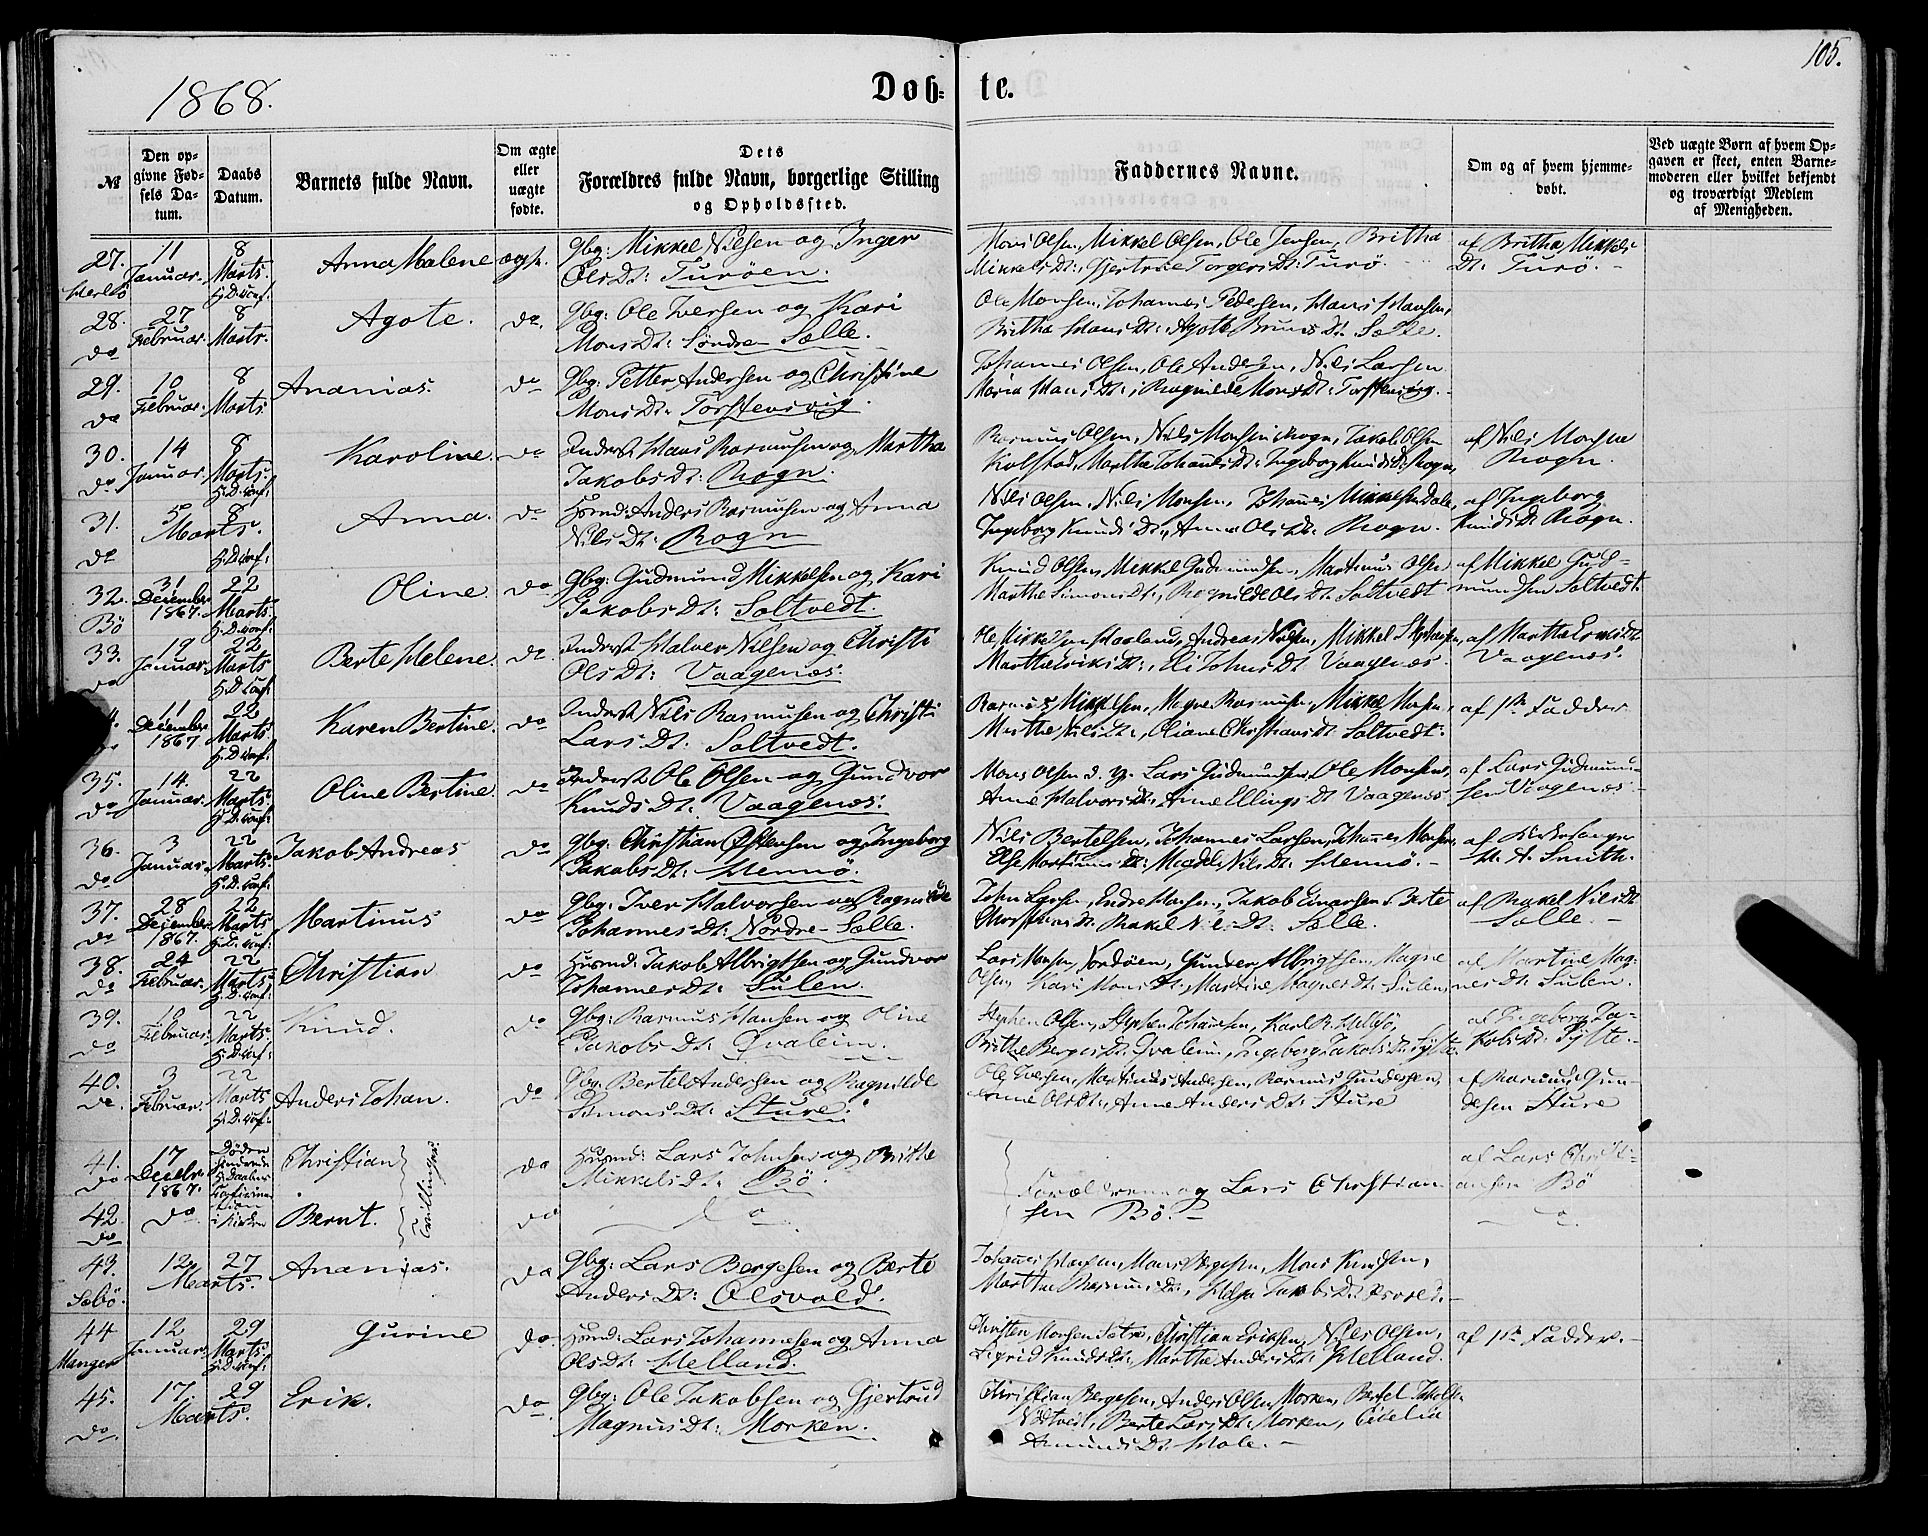 1868.
Døb-te.
105.
№
Den opgivne Fødsels Datum.
Daabs Datum.
Barnets fulde Navn.
Om ægte eller uægte fødte.
Dets Forældres fulde Navn, borgerlige Stilling og Opholdssted.
Faddernes Navne.
Om og af hvem hjemmedøbt.
Ved uægte Børn af hvem Opgaven er skeet, enten Barnemoderen eller hvilket bekjendt og troværdigt Medlem af Menigheden.
27. Herlø 11 Januar. 8 Marts. H.D. conf: Anna Malene ægte. Gbg: Mikkel Nilsen og Inger
Ols Dt: Turøen.
Mons Olsen, Mikkel Olsen, Ole Jensen, Britha
Mikkels Dt:, Gjertrue Torgers Dt: Turø.
af Britha Mikkels
Dt: Turø.
28. do 27 Februar. 8 Marts. Agote. do. Gbg: Ole Iversen og Kari
Mons Dt: Søndre Sælle.
Ole Monsen, Johannes Pedersen, Hans Hansen,
Britha Hans Dt: Agothe Dt: Sælle.
29. do 10 Februar. 8 Marts Ananias. do Gbg: Petter Andersen og Christine
Mons Dt: Torstensvig.
Johannes Olsen, Ole Andersen, Nils Larsen
Maria Hans Dt:, Ragnilde Mons Dt: Torstensvig.
30. do 14 Januar. 8 Marts. H.D. conf: Karoline. do Inderst Hans Rasmusen og Martha
Jakobs Dt: Rogn.
Rasmus Olsen, Nils Monsen Rogn, Jakob Olsen
Kolstad, Martha Johannes Dt: Ingeborg Knuds Dt: Rogn,
af Nils Monsen
Rogn.
31. do 5 Marts. 8 H.D. conf: Anna. do Husmd: Anders Rasmusen og Anna
Nils Dt: Rogn
Nils Olsen, Nils Monsen, Johannes Mikkelsen Dale,
Ingeborg Knuds Dt:, Anna Ols Dt: Rogn.
af Ingeborg
Knuds Dt Rogn.
32. Bö 31 December 1867. 22 Marts. H.D. conf: Oline. do Gbg: Gudmund Mikkelsen og Kari
Jakobs Dt: Soltvedt.
Knud Olsen, Mikkel Gudmundsen, Martinus Olsen
Marthe Simons Dt:, Ragnilde Ols Dt: Soltvedt
af Mikkel Gud-
mundsen Soltvedt.
33. do 19 Januar. 22 Marts H.D. conf: Berte Helene. do. Inderst Halvor Nilsen og Christi
Ols Dt: Vaagenæs.
Ole Mikkelsen Haaland, Andreas Nilsen, Mikkel Stephansen,
Martha Eriks Dt:, Eli Johns Dt Vaagenæs.
af Martha Eriks Dt
Vaagenæs.
11 December 1867 22 Marts. H.D. conf: Karen Bertine. do Inderst Nils Rasmusen og Christi
Lars Dt: Soltvedt.
Rasmus Mikkelsen, Magne Rasmusen, Mikkel Monsen,
Marthe Nils Dt:, Oliane Christians Dt Soltvedt.
af 1ste Fadder
35. do 14. Januar. 22 Marts. H.D. conf: Oline Bertine. do Inderst Ole Olsen og Gundvor
Knuds Dt: Vaagenæs.
Mons Olsen d. y. Lars Gudmundsen, Ole Monsen,
Anne Halvors Dt:, Anne Ellings Dt Vaagenæs
af Lars Gudmund-
sen Vaagenæs.
36. do 3 Januar. 22 Marts. H.D. conf: Jakob Andreas do Gbg: Christian Østensen og Ingeborg
Jakobs Dt: Hennö.
Nils Bertelsen, Johannes Larsen, Johannes Monsen,
Else Martinus Dt: Magdele Nils Dt: Hennö.
af Kirkesanger
H. A. Smith.
37. do 28 December 1867. 22 Marts H.D. conf: Martinus do Gbg: Iver Halvorsen og Ragnilde
Johannes Dt: Nordre Sælle.
John Larsen, Endre Hansen, Jakob Einarsen, Berte
Dt: Rakel Nils Dt: Sælle.
af Rakel Nils Dt
Sælle.
38. do 24 Februar. 22 Marts. H.D. conf: Christian do Husmd: Jakob Albrigtsen og Gundvor
Johannes Dt: Sulen.
Lars Monsen, Nordöen, Gunder Albrigtsen, Magne
Olsen, Kari Mons Dt:, Martine Magnes Dt: Sulen,
af Martine Mag-
nes Dt: Sulen.
39. do 10 Februar. 22 Marts. H.D. conf: Knud. do Gbg: Rasmus Hansen og Oline
Jakobs Dt: Qvaleim.
Stephen Olsen, Stephen Johannesen, Karl R. Hellesö,
Brithe Berges Dt: Qvaleim, Ingeborg Jakobs Dt: Sÿlte
af Ingeborg Ja-
kobs Dt: Sÿlte.
40. do. 3 Februar. 22 Marts H.D. conf: Anders Johan. do Gbg: Bertel Andersen og Ragnilde
Simons Dt: Sture.
Ole Iversen, Martinus Andersen, Rasmus Gundersen,
Anne Ols Dt:, Anne Anders Dt: Sture
af Rasmus Gun-
dersen Sture
41. do 17 Decbr. 1867. Christian Tvillinger. do Husmd: Lars Johnsen og Brithe
Mikkels Dt: Bö.
Forældrene og Lars Christian
sen Bö.
af Lars Christi-
ansen Bö
42. do do Bernt. do do
43. Sæbö. 12 27 Marts. Ananias. do Gbg: Lars Bergesen og Berte
Anders Dt: Olsvold.
Johannes Hansen, Mons Bergesen, Mons Knudsen,
Marthe Rasmus Dt:, Helga Jakobs Dt: Olsvold.
44 Manger 12 Januar. 29 Marts. H.D. conf: Gurine do. Husmd: Lars Johannesen og Anna
Ols Dt: Helland.
Christen Monsen Sætre, Christian Eriksen, Nils Olsen,
Sigrid Knuds Dt: Martha Anders Dt: Helland.
af 1ste Fadder.
45. do. 17. 29 Marts. Erik. do. Gbg: Ole Jakobsen og Gjertrud
Magnus Dt: Morken.
Christian Bergesen, Anders Olsen Morken, Bertel Jakobs.
Nÿtvedt, Berte Lars Dt: Morken, Cicelia
Amunds Dt: Hole.